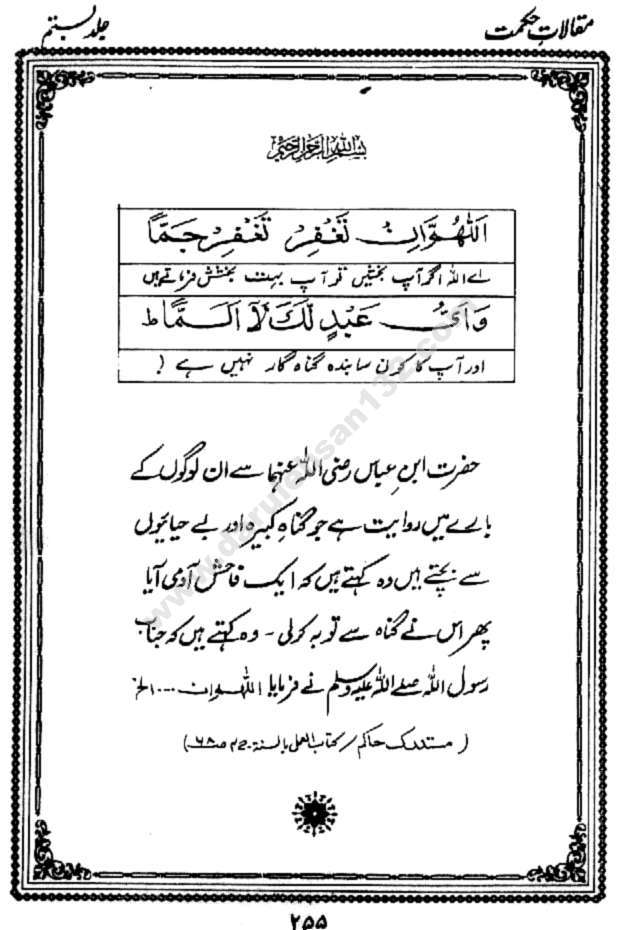 مقالاتِ حکمت
جلد بستم
بسم الله الرحمن الرحيم
اَللّٰهُمَّ اِنْ تَغْفِرْ تَغْفِرْ جَمًّا
اے اللہ اگر آپ بخشیں تو آپ بہت بخشش فرماتے ہیں
وَاَیُّ عَبْدٍ لَّكَ لَآ اَلَمَّا ط
اور آپ کا کون سا بندہ گناہ گار نہیں ہے (
حضرت ابن عباس رضی اللہ عنہما سے ان لوگوں کے
بارے میں روایت ہے جو گناہِ کبیرہ اور بے حیائیوں
سے بچتے ہیں وہ کہتے ہیں کہ ایک فاحش آدمی آیا
پھر اس نے گناہ سے توبہ کرلی ۔ وہ کہتے ہیں کہ جناب
رسول اللہ صلے اللہ علیہ وسلم نے فرمایا اللھم ان ۔۔۔۔ الخ
( مستدرک حاکم / کتاب العمل بالسنة ج۲ ص۶۸ )
www.darulehsan132.com
۲۵۵